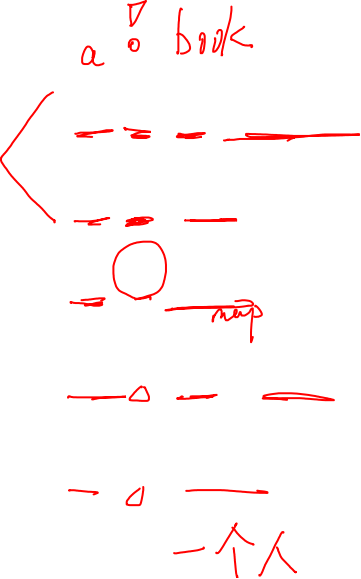 a ! book
map
一个人